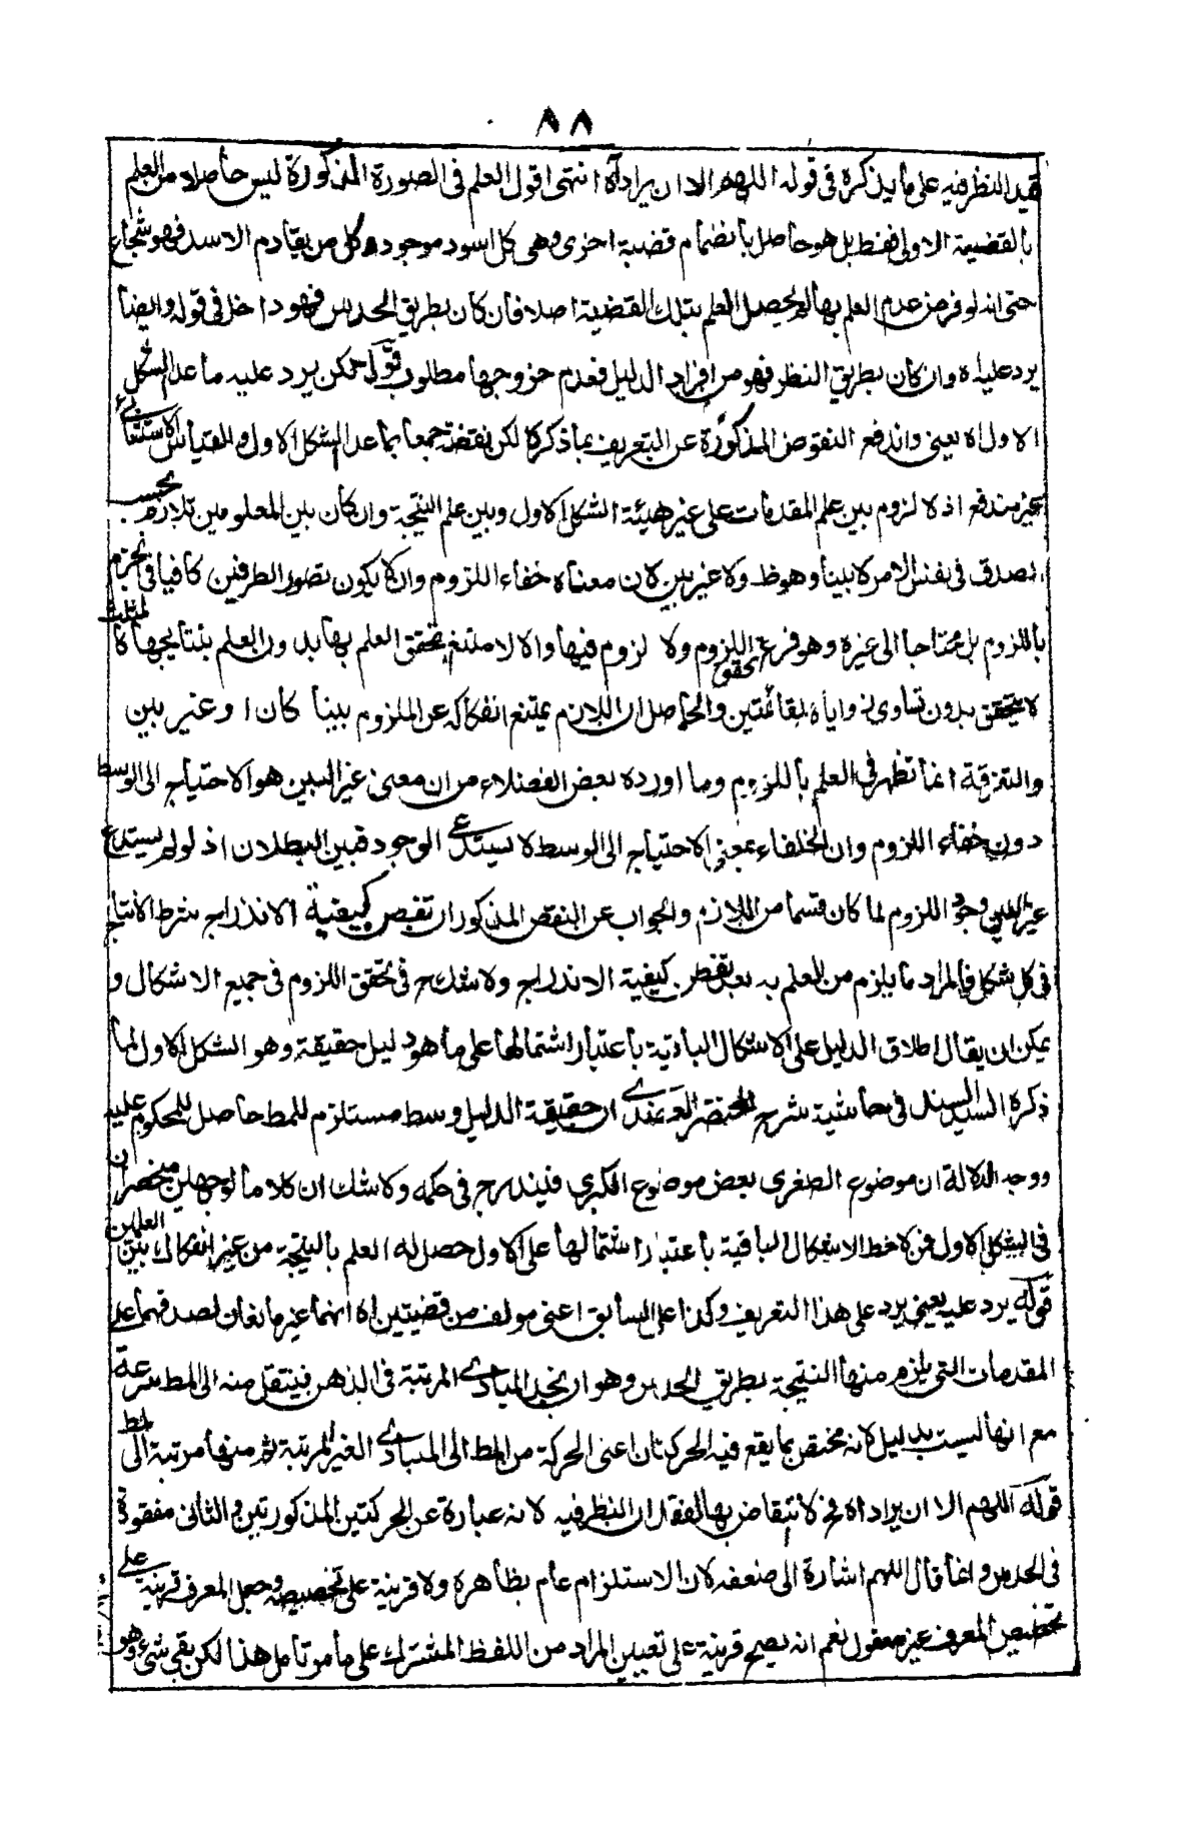 ٨٨
قيد النظر فيه على ما يذكره في قوله اللهم الا ان يراد آه انتهى اقول العلم في الصورة المذكورة ليس حاصلا من العلم
بالقضية الاولى فقط بل هو حاصل بانضمام قضية اخرى وهي كل اسود موجود وكل من يقادم الاسد فهو شجاع
حتى انه لو فرض عدم العلم بها لم يحصل العلم بتلك القضية اصلا فان كان بطريق الحدس فهو داخل في قوله وايضا
يرد عليه اه وان كان بطريق النظر فهو من افراد الدليل فعدم خروجها مطلوب قوله لكن يرد عليه ما عدا الشكل
الاول اه يعني واندفع النقوض المذكورة عن التعريف بما ذكره لكن نقضه جمعا بما عدا الشكل الاول والقياس الاستثنائي
غير مندفع اذ لا لزوم بين علم المقدمات على غير هيئة الشكل الاول وبين علم النتيجة وان كان بين المعلومين تلازم بحسب
الصدق في نفس الامر لا بينا وهو ظ ولا غير بين لان معناه خفاء اللزوم وان لا يكون تصور الطرفين كافيا في الجزم
باللزوم بل محتاجا الى غيره وهو فرع تحقق اللزوم ولا لزوم فيها والا لامتنع تحقق العلم بها بدون العلم بنتايجها كالمثلث
لا يتحقق بدون تساوي زواياه لقائمتين والحاصل ان اللازم يمتنع انفكاكه عن الملزوم بينا كان او غير بين
والتفرقة انما تظهر في العلم باللزوم وما اورده بعض الفضلاء من ان معنى غير البين هو الاحتياج الى الوسط
دون خفاء اللزوم وان الخفاء بمعنى الاحتياج الى الوسط لا يستدعي الوجود فبين البطلان اذ لو لم يستدع
غير البين وجود اللزوم لما كان قسما من اللازم والجواب عن النقض المذكور ان تفطن كيفية الاندراج شرط الانتاج
في كل شكل فالمراد ما يلزم من العلم به بعد تفطن كيفية الاندراج ولا شك ح في تحقق اللزوم في جميع الاشكال و
يمكن ان يقال اطلاق الدليل على الاشكال الباقية باعتبار اشتمالها على ما هو دليل حقيقة وهو الشكل الاول لما
ذكره السيد السند في حاشية شرح المختصر العضدي ان حقيقة الدليل وسط مستلزم للمط حاصل للمحكوم عليه
ووجه الدلالة ان موضوع الصغرى بعض موضوع الكبرى فيندرج في حكمه ولا شك ان كلا ما لوجهين منحصران
في الشكل الاول فمن لاحظ الاشكال الباقية باعتبار اشتمالها على الاول حصل له العلم بالنتيجة من غير انفكاك بين العلمين
قوله يرد عليه يعني يرد على هذا التعريف وكذا على السابق اعني مولف من قضيتين اه انهما غير مانعان لصدقهما على
المقدمات التي يلزم منها النتيجة بطريق الحدس وهو ان يجد المبادي المرتبة في الذهن فينتقل منه الى المط بسرعة
مع انها ليست بدليل لانه مختص بما يقع فيه الحركتان اعني الحركة من المط الى المبادي الغير المرتبة ثم منها مرتبة الى المط
قوله اللهم الا ان يراد اه فح لا انتقاض بها لفقدان النظر فيه لانه عبارة عن الحركتين المذكورتين والثاني مفقودة
في الحدس وانما قال اللهم اشارة الى ضعفه لان الاستلزام عام بظاهره ولا قرينة على تخصيصه وجعل المعرف قرينة على
تخصيص المعرف غير معقول نعم انه يصح قرينة على تعيين المراد من اللفظ المشترك على ما مر تامل هذا لكن بقي شيء وهو